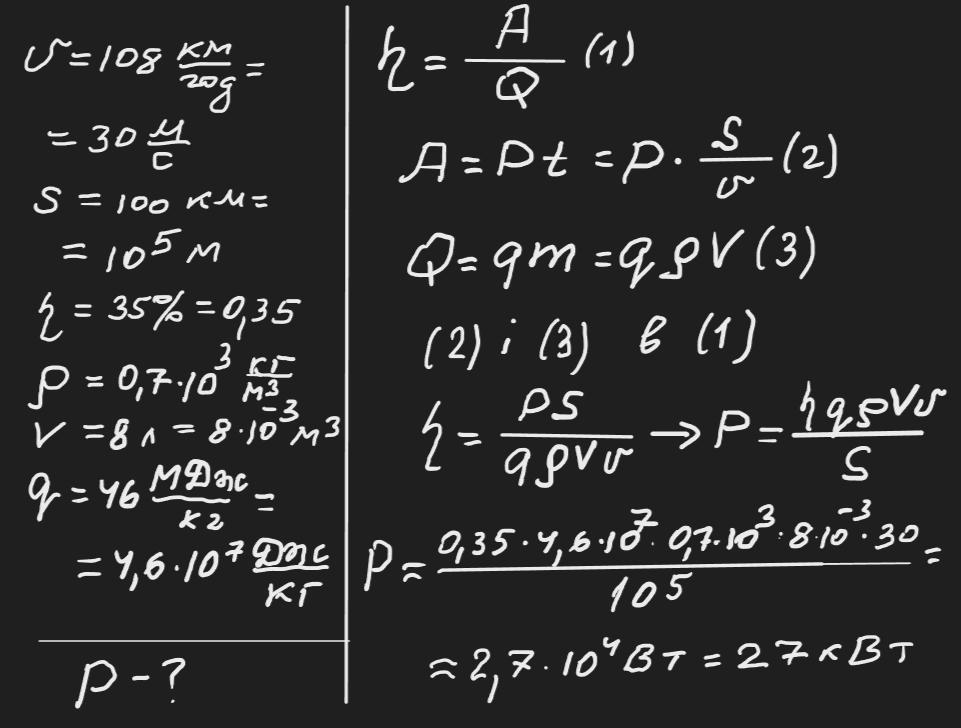 υ = 108 км/год =
= 30 м/с
S = 100 км =
= 10⁵ м
η = 35% = 0,35
ρ = 0,7·10³ кг/м³
V = 8 л = 8·10⁻³ м³
q = 46 МДж/кг =
= 4,6·10⁷ Дж/кг
P - ?
η = A/Q (1)
A = Pt = P · S/υ (2)
Q = qm = qρV (3)
(2) і (3) в (1)
η = PS/qρVυ → P = ηqρVυ/S
P = 0,35·4,6·10⁷·0,7·10³·8·10⁻³·30/10⁵ =
≈ 2,7·10⁴ Вт = 27 кВт